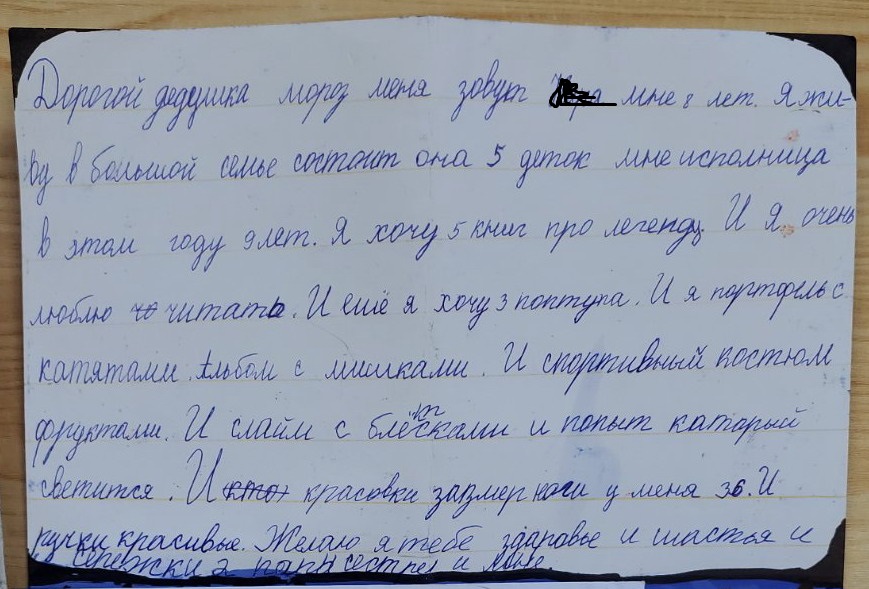 Дорогой дедушка мороз меня зовут мне 8 лет. Я жи-
ву в большой семье состоит она 5 деток мне исполница
в этом году 9 лет. Я хочу 5 книг про легенды. И Я очень
люблю читать. И ещё я хочу 3 поптупа. И я портфель с
катятами. Альбом с мишками. И спортивный костюм
фруктами. И слайм с блёстками и попыт катарый
светится. И красовки зазмер ноги у меня 36. И
ручки красивые. Желаю я тебе здаровье и шастья и
серёжки 2 пары сестре и мне.